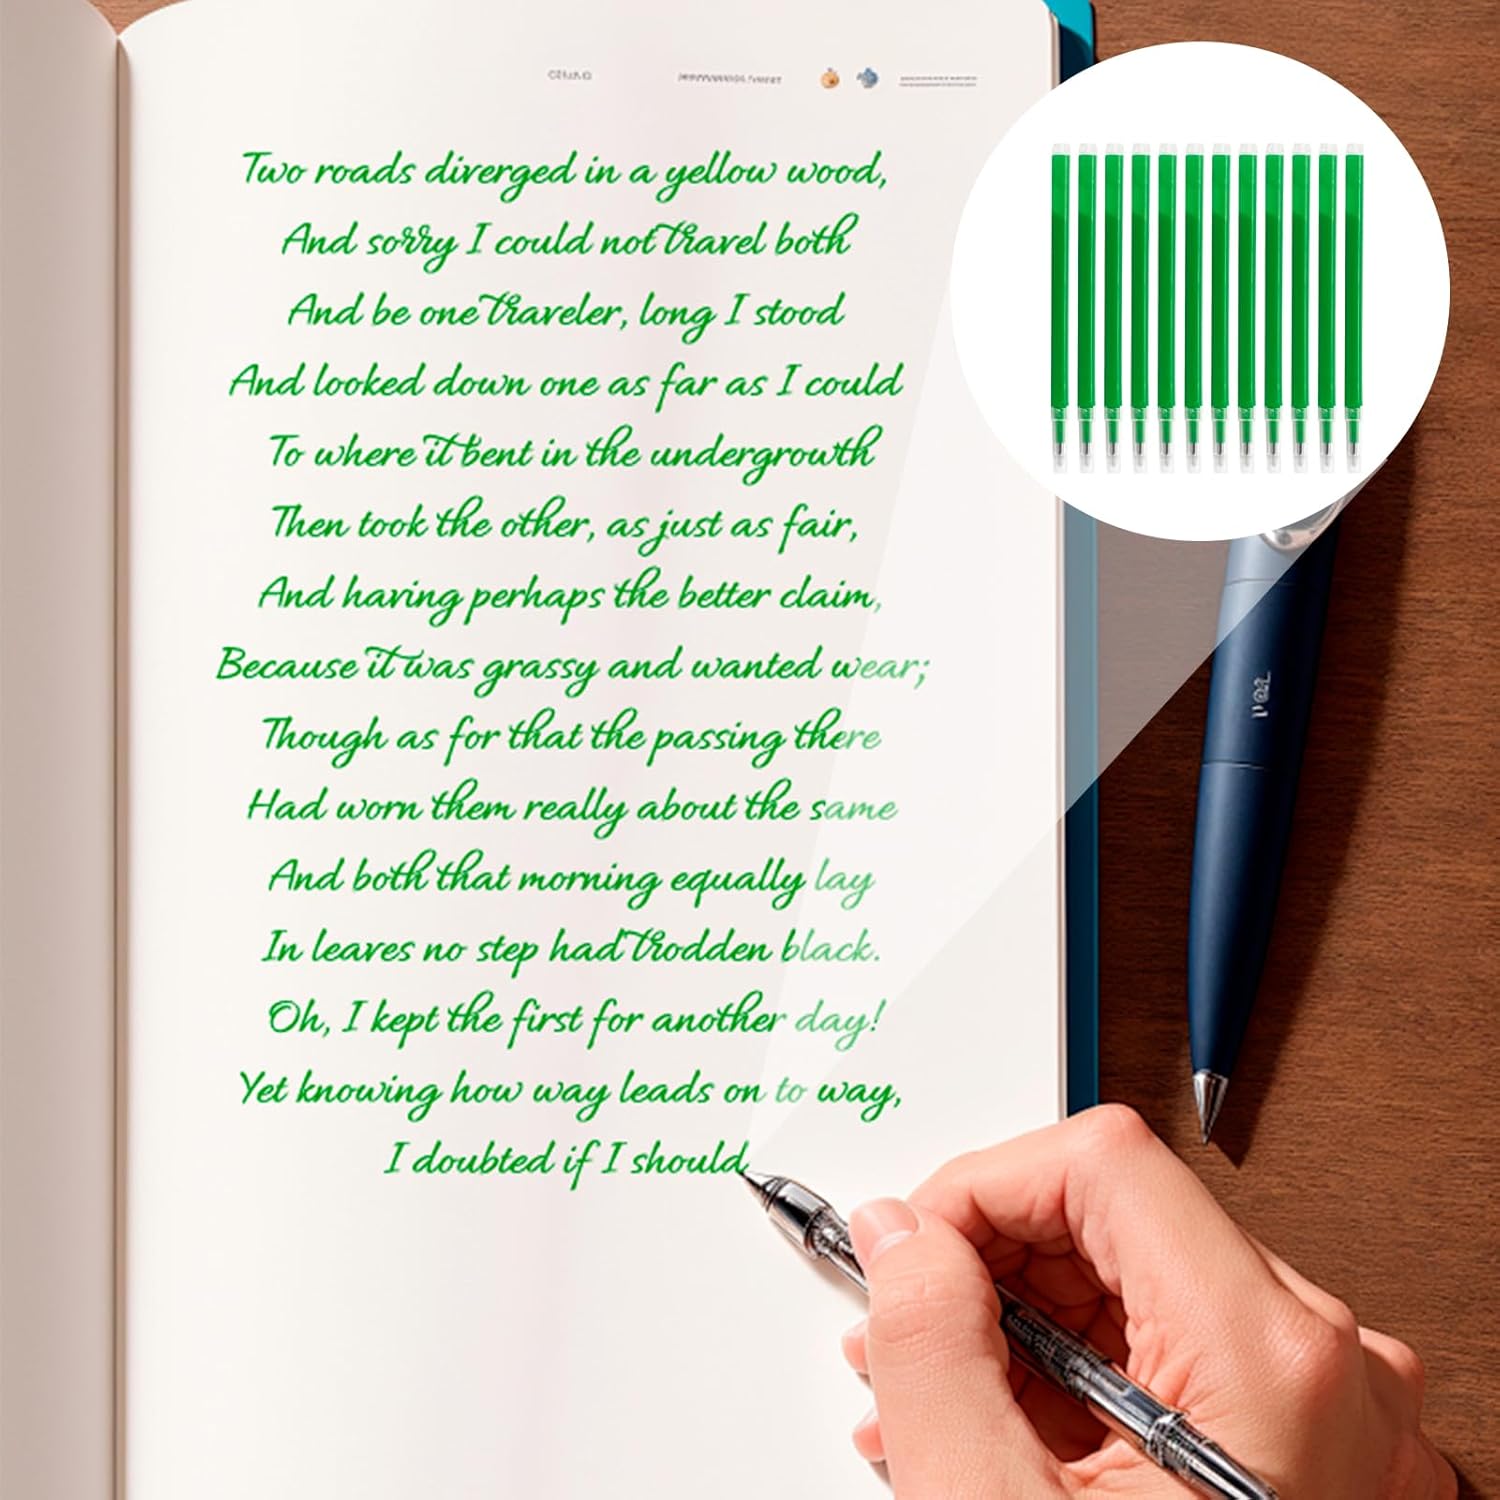 Two roads diverged in a yellow wood,
And sorry I could not travel both
And be one traveler, long I stood
And looked down one as far as I could
To where it bent in the undergrowth
Then took the other, as just as fair,
And having perhaps the better claim,
Because it was grassy and wanted wear;
Though as for that the passing there
Had worn them really about the same
And both that morning equally lay
In leaves no step had trodden black.
Oh, I kept the first for another day!
Yet knowing how way leads on to way,
I doubted if I should